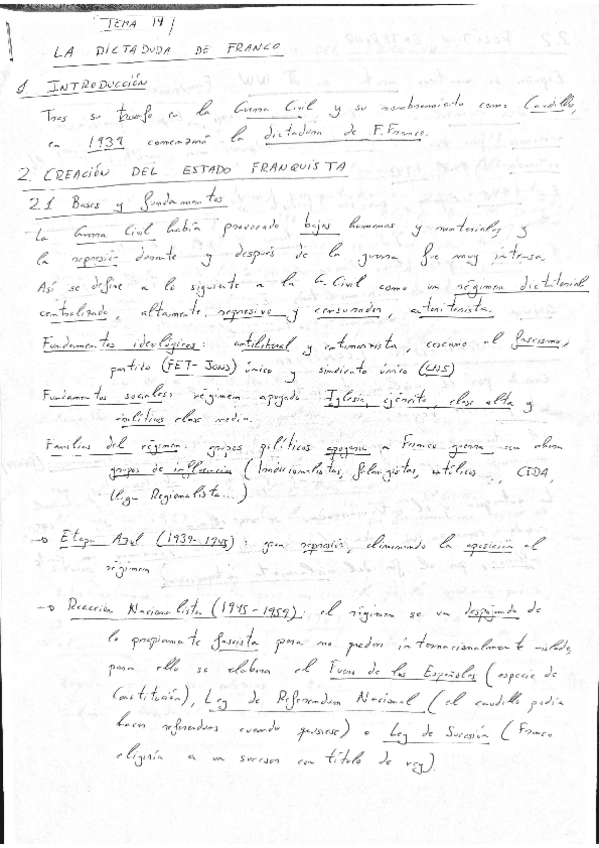 TEMA 14
LA DICTADUDA DE FRANCO
1 INTRODUCCIÓN
Tras su triunfo en la Guerra Civil y su nombramiento como Caudillo,
en 1939 comenzará la dictadura de F. Franco.
2. CREACIÓN DEL ESTADO FRANQUISTA
2.1 Bases y fundamentos
La Guerra Civil había provocado bajas humanas y materiales y
la represión durante y después de la guerra fue muy intensa.
Así se define a lo siguiente a la G. Civil como un régimen dictatorial
centralizado, altamente represivo y censurador, autoritarista.
Fundamentos ideológicos: antiliberal y antimarxista, cercano al fascismo,
partido (FET-JONS) único y sindicato único (CNS)
Fundamentos sociales: régimen apoyado Iglesia, ejército, clase alta y
clase media.
Familias del régimen: grupos políticos a Franco guerra ahora
grupos de influencia (tradicionalistas, falangistas, católicos..., CEDA,
Lliga Regionalista...)
→ Etapa Azul (1939-1945): gran represión, eliminando la oposición al
régimen
→ Reacción Nacionalista (1945-1959): el régimen se va despojando de
lo propiamente fascista para no quedar internacionalmente aislado,
para ello se elabora el Fuero de los Españoles (especie de
Constitución), Ley de Referendum Nacional (el caudillo podía
hacer referendums cuando quisiese) o Ley de Sucesión (Franco
eligiría a un sucesor con título de rey).